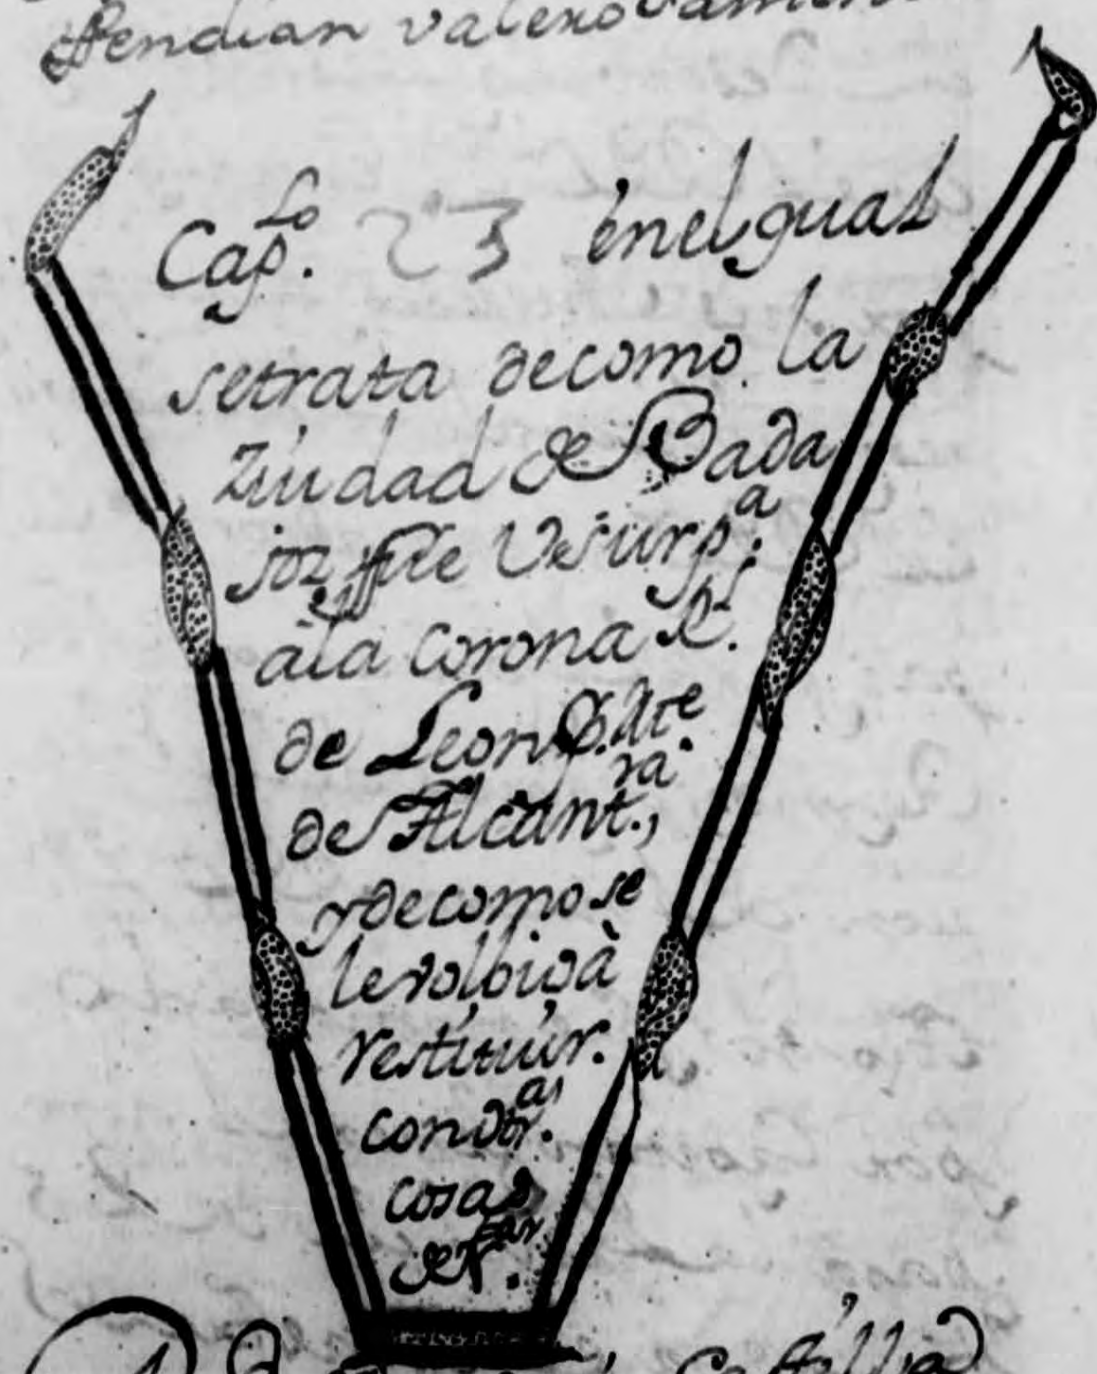 ffendian valerosamen
Cap.lo 23 enelqual
setrata decomo la
Ziudad de Bada
joz ffue Vsurp.a
ála corona R.l
de Leon
de Alcant.ra,
y decomo se
levolvio à
restituir.
con otr.as
cosas